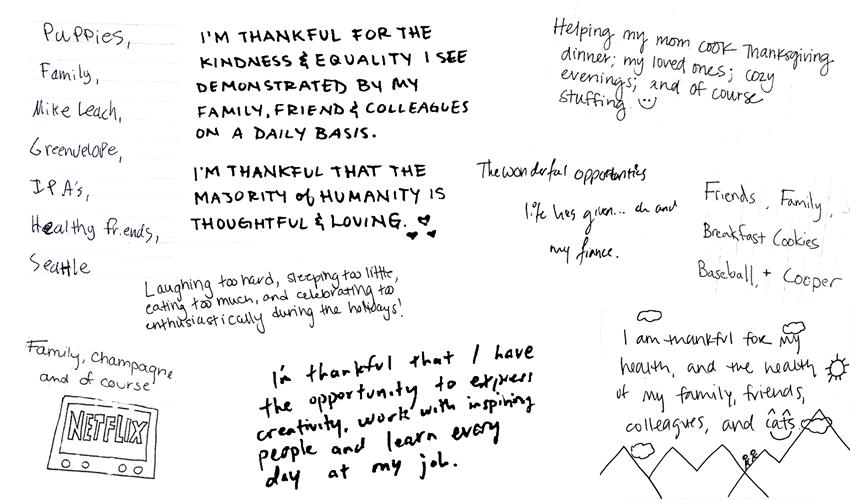 Puppies,
Family,
Mike Leach,
Greenvelope,
IPA's,
Healthy friends,
Seattle
I'M THANKFUL FOR THE
KINDNESS & EQUALITY I SEE
DEMONSTRATED BY MY
FAMILY, FRIEND & COLLEAGUES
ON A DAILY BASIS.
I'M THANKFUL THAT THE
MAJORITY of HUMANITY IS
THOUGHTFUL & LOVING.
Helping my mom cook Thanksgiving
dinner; my loved ones; cozy
evenings; and of course
stuffing.
The wonderful opportunities
life has given... oh and
my fiance.
Friends, Family,
Breakfast Cookies
Baseball, + Cooper
Laughing too hard, sleeping too little,
eating too much, and celebrating too
enthusiastically during the holidays!
Family, champagne
and of course
NETFLIX
I'm thankful that I have
the opportunity to express
creativity, work with inspiring
people and learn every
day at my job.
I am thankful for my
health, and the health
of my family, friends,
colleagues, and cats.